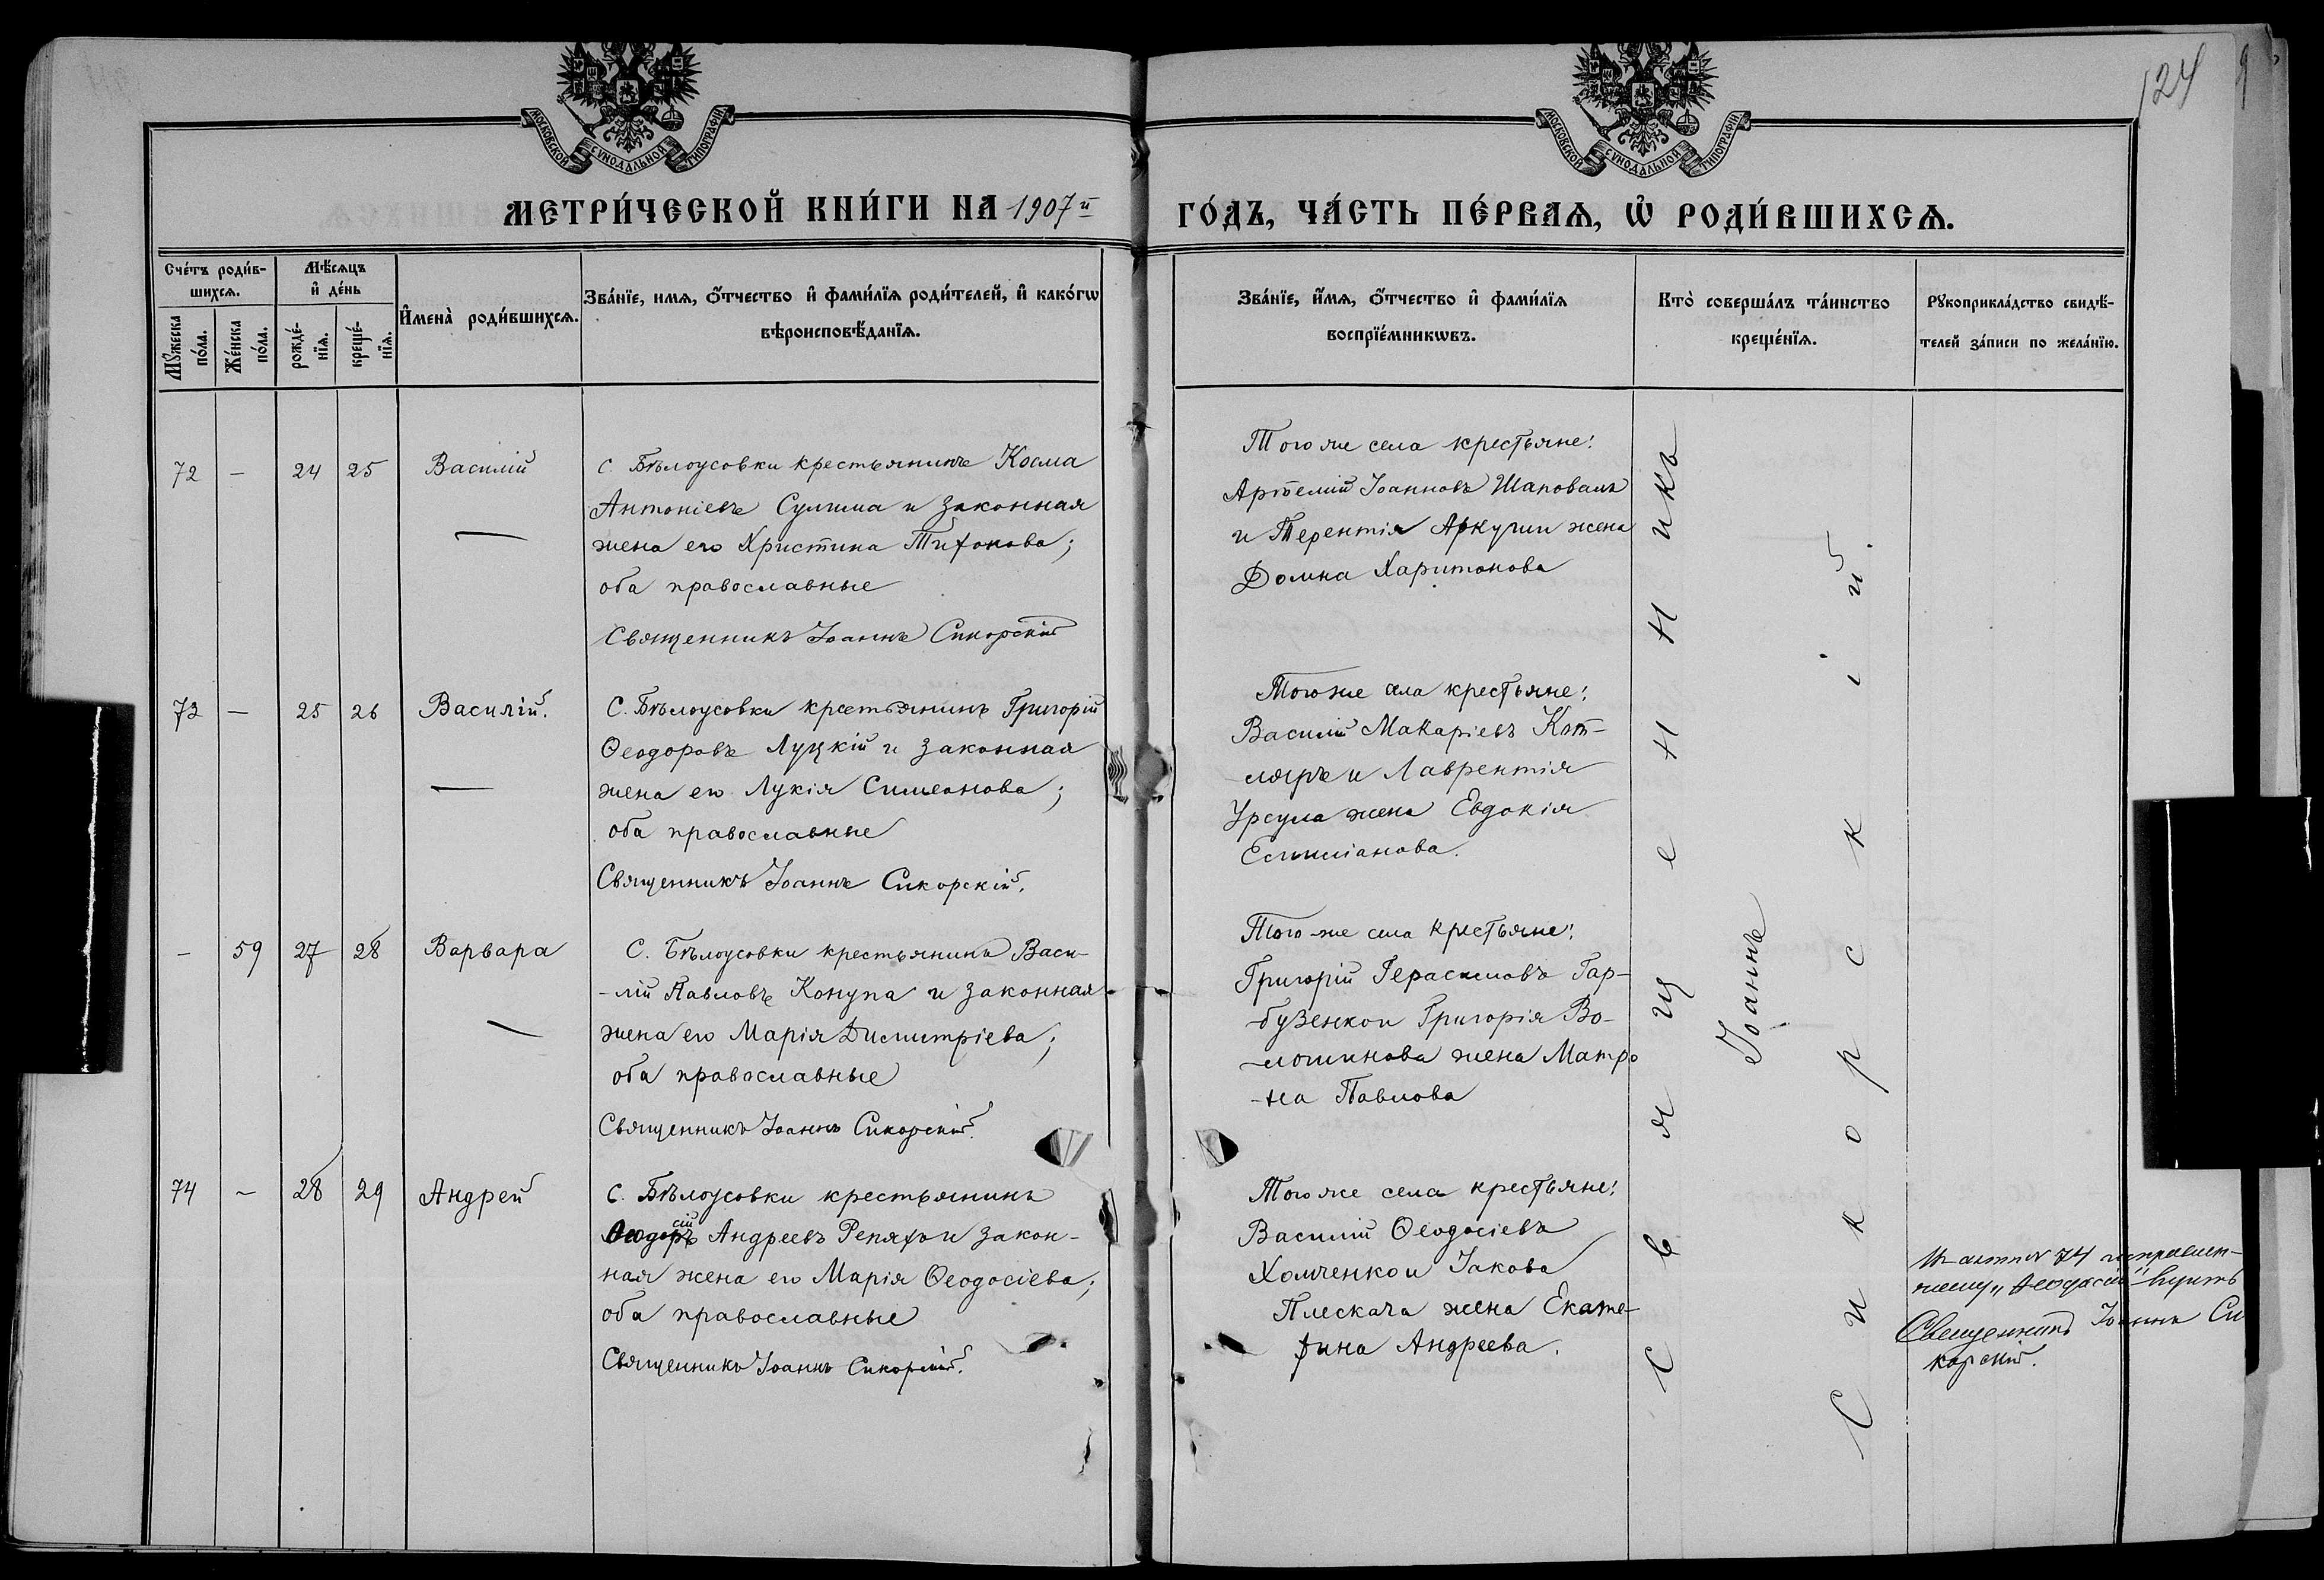 124
МОСКОВСКОЙ СѴНОДАЛЬНОЙ ТИПОГРАФІИ
МОСКОВСКОЙ СѴНОДАЛЬНОЙ ТИПОГРАФІИ
МЕТРИ́ЧЕСКОЙ КНИ́ГИ НА 1907й
ГО́ДЪ, ЧА́СТЬ ПЕ́РВАѦ, Ѽ РОДИ́ВШИХСѦ.
Сче́тъ роди́в-
шихсѧ.
Мꙋжеска по́ла.
Же́нска по́ла.
Мѣ́сѧцъ
и҆ де́нь
рожде́-
нїѧ.
креще́-
нїѧ.
И҆мена̀ роди́вшихсѧ.
Зва́нїе, имѧ, ѻ҆́тчество и҆ фами́лїѧ роди́телей, и҆ како́гѡ
вѣроисповѣ́данїѧ.
Зва́нїе, и҆́мѧ, ѻ҆́тчество и҆ фами́лїѧ
воспрїе́мникѡвъ.
Кто̀ соверша́лъ та́инство
креще́нїѧ.
Рꙋкоприкла́дство свидѣ́-
телей за́писи по жела́нїю.
72 – 24 25 Василій
с. Бѣлоусовки крестьянинъ Косма
Антоніевъ Сулима и законная
жена его Христина Тихонова;
оба православные
Священникъ Іоаннъ Сикорскій
Того же села крестьяне:
Артемій Іоанновъ Шаповалъ
и Терентія Аркуши жена
Домна Харитонова
73 – 25 26 Василій.
С. Бѣлоусовки крестьянинъ Григорій
Ѳеодоровъ Луцкій и законная
жена его Лукія Симеонова;
оба православные
Священникъ Іоаннъ Сикорскій.
Того же села крестьяне:
Василій Макаріевъ Кот-
ляръ и Лаврентія
Урсула жена Евдокія
Емиліанова.
– 59 27 28 Варвара
С. Бѣлоусовки крестьянинъ Васи-
-лій Павловъ Конупа и законная
жена его Марія Димитріева;
оба православные
Священникъ Іоаннъ Сикорскій.
Того же села крестьяне:
Григорій Герасимовъ Гар-
-бузенко и Григорія Во-
-лошинова жена Матро
-на Павлова
74 – 28 29 Андрей
С. Бѣлоусовки крестьянинъ
сій
Андреевъ Репяхъ и закон-
ная жена его Марія Ѳеодосіева;
оба православные
Священникъ Іоаннъ Сикорскій.
Того же села крестьяне:
Василій Ѳеодосіевъ
Хомченко и Іакова
Плескача жена Екате-
рина Андреева.
Священникъ
Іоаннъ
Сикорскій.
74 исправлен-
ному „Ѳеодосій" вѣрить
Священникъ Іоаннъ Си
корскій.